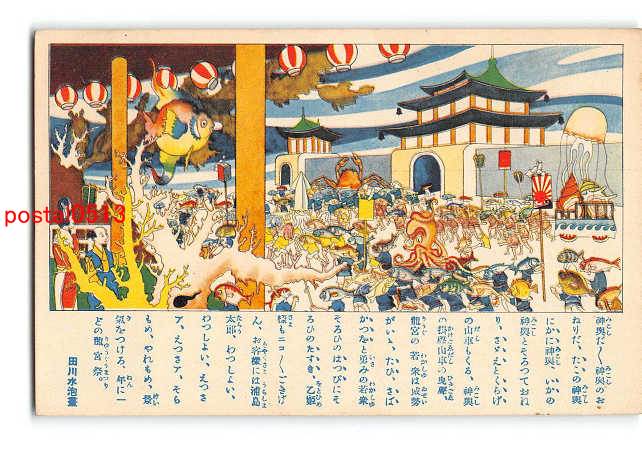 神輿だ〱神輿のお
ねりだ、たこの神輿
にかに神輿、いかの
神輿とそろつておね
り、さゞえとくらげ
の山車もくる、神輿
の掛聲山車の曳聲、
龍宮の若衆は威勢
がいゝ、たひ、さば
かつをと若みの若衆
そろひのはつぴにそ
ろひのたすき、乙姫
様もニコ〱ごきげ
ん、お客様には浦島
太郎、わつしよい、
わつしよい、えつさ
ア、えつさア、そら
もめ、やれもめ、景
氣をつけろ、年に一
どの龍宮祭。
田川水泡畫
postal0513